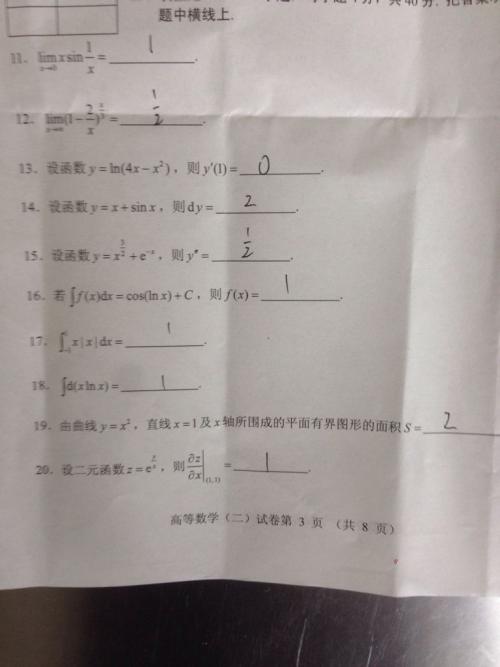 题中横线上.
11. lim_{x→0} x sin 1/x = 1 .
12. lim_{x→∞} (1 − 2/x)^{x/3} = 1/2 .
13. 设函数 y = ln(4x − x²)，则 y′(1) = 0 .
14. 设函数 y = x + sin x，则 dy = 2 .
15. 设函数 y = x^{3/2} + e^{−x}，则 y″ = 1/2 .
16. 若 ∫f(x)dx = cos(ln x) + C，则 f(x) = 1 .
17. ∫_{−1}^{1} x|x|dx = 1 .
18. ∫d(x ln x) = 1 .
19. 由曲线 y = x²，直线 x = 1 及 x 轴所围成的平面有界图形的面积 S = 2
20. 设二元函数 z = e^{y/x}，则 ∂z/∂x|_{(1,1)} = 1 .
高等数学（二）试卷第 3 页 （共 8 页）